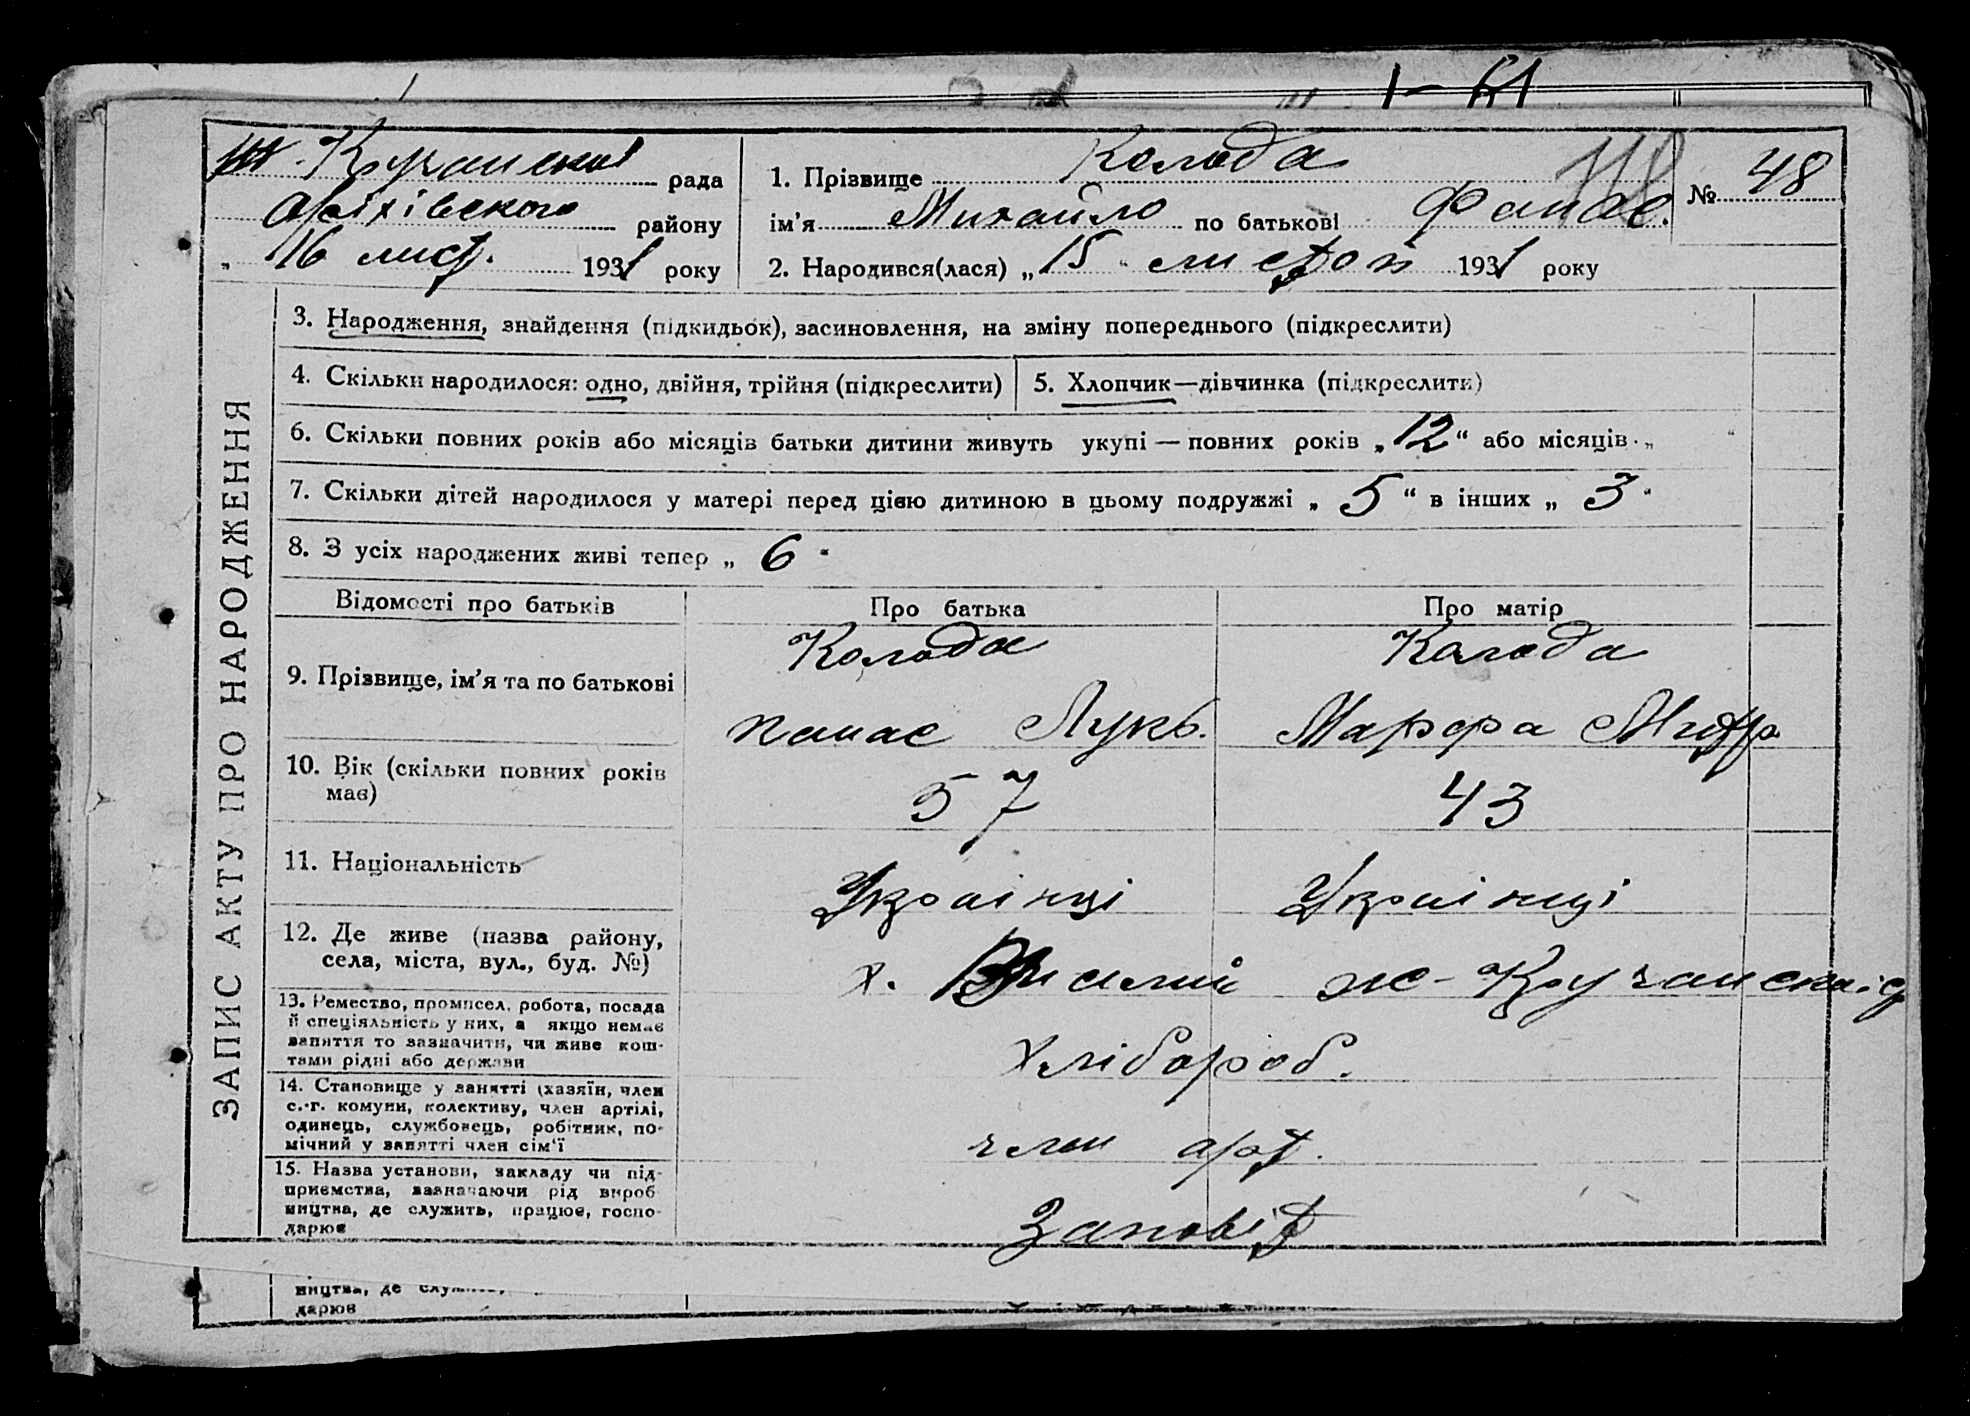 1 – 61
Кручанська рада
Оріхівського району
„ 16 лист. 1931 року
1. Прізвище Колода № 48
ім’я Михайло по батькові Фанас. 118
2. Народився(лася) „15 листоп 1931 року
ЗАПИС АКТУ ПРО НАРОДЖЕННЯ
3. Народження, знайдення (підкидьок), засиновлення, на зміну попереднього (підкреслити)
4. Скільки народилося: одно, двійня, трійня (підкреслити)
5. Хлопчик—дівчинка (підкреслити)
6. Скільки повних років або місяців батьки дитини живуть укупі — повних років „12“ або місяців „ “
7. Скільки дітей народилося у матері перед цією дитиною в цьому подружжі „ 5 “ в інших „ 3 “
8. З усіх народжених живі тепер „ 6 “
Відомості про батьків Про батька Про матір
9. Прізвище, ім’я та по батькові
Колода Колода
панас Лукь. Марфа Митр.
10. Вік (скільки повних років
має)
57 43
11. Національність
Українці Українці
12. Де живе (назва району,
села, міста, вул., буд. №)
х.
13. Ремество, промисел, робота, посада
й спеціяльність у них, а якщо немає
заняття то зазначити, чи живе кош-
тами рідні або держави
хлібороб.
14. Становище у занятті (хазяїн, член
с.-г. комуни, колективу, член артілі,
одинець, службовець, робітник, по-
мічний у занятті член сім’ї
член арт.
15. Назва установи, закладу чи під-
приємства, зазначаючи рід вироб
ництва, де служить, працює, госпо-
дарює
Заповіт
ництва, де служить,
дарює